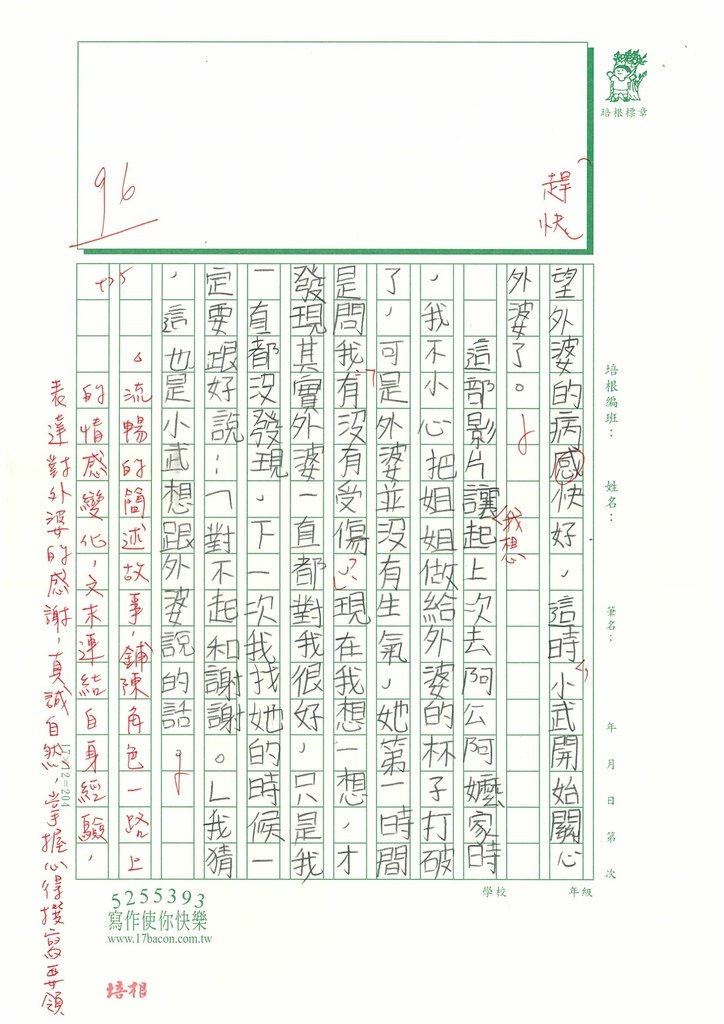 培根標章
趕快
96
培根編班：
姓名：
筆名：
年 月 日 第 次
望外婆的病感快好，這時小武開始關心
外婆了。
這部影片讓起上次去阿公阿嬤家時
我想
，我不小心把姐姐做給外婆的杯子打破
了，可是外婆並沒有生氣，她第一時間
是問我有沒有受傷，現在我想一想，才
「
？」
發現其實外婆一直都對我很好，只是我
一直都沒發現，下一次我找她的時候一
定要跟好說：「對不起和謝謝。」我猜
，這也是小武想跟外婆說的話。
。流暢的簡述故事，鋪陳角色一路上
的情感變化，文末連結自身經驗，
表達對外婆的感謝，真誠自然，掌握心得撰寫要領
17×12=204
學校
年級
5255393
寫作使你快樂
www.17bacon.com.tw
培根